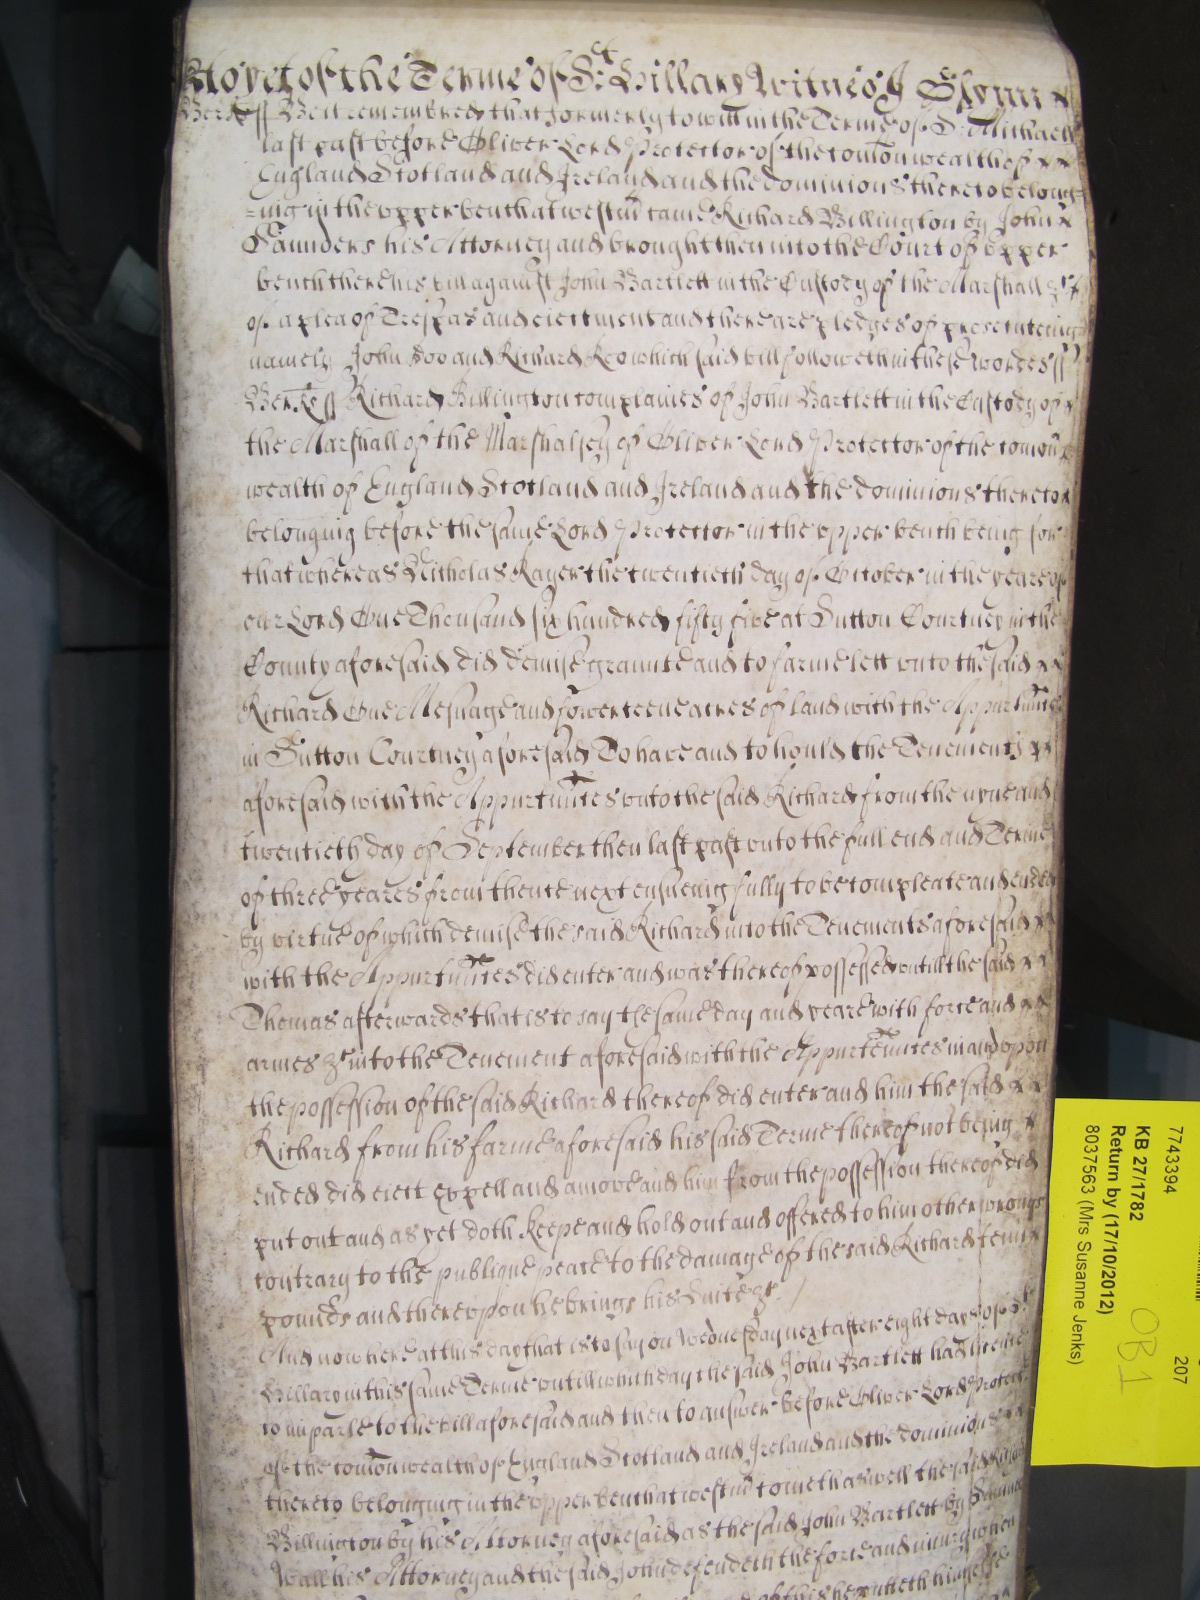 As yet of the Terme of St Hillary Witnes J Glynn
Berks ss Be it remembred that formerly to witt in the Terme of St Michaell
last past before Oliver Lord Protector of the comon wealth of
England Scotland and Ireland and the dominions thereto belong=
=ing in the upper bench at westm came Richard Billington by John
Saunders his Attorney and brought then into the Court of upper
bench there his bill against John Bartlett in the Custody of the Marshall &c
of a plea of Trespas and eiectment and there are pledges of prosecuteing
namely John Doo and Richard Roo which said bill followeth in these wordes ss
Berks ss Richard Billington complaines of John Bartlett in the Custody of
the Marshall of the Marshalsey of Oliver Lord Protector of the comon
wealth of England Scotland and Ireland and the dominions thereto
belonging before the same Lord Protector in the upper bench being for
that whereas Nicholas Kager the twentieth day of October in the yeare of
our Lord One Thousand six hundred fifty five at Sutton Courtney in the
County aforesaid did demise graunte and to farme lett unto the said
Richard One Messuage and fowerteene acres of land with the Appurtnnces
in Sutton Courtney aforesaid To have and to hould the Tenements
aforesaid with the Appurtnnces unto the said Richard from the nyne and
twentieth day of September then last past unto the full end and Terme
of three yeares from thence next ensueing fully to be compleate and ended
by virtue of which demise the said Richard into the Tenements aforesaid
with the Appurtnnces did enter and was thereof possessed untill the said
Thomas afterwards that is to say the same day and yeare with force and
armes &c into the Tenement aforesaid with the Appurtennces in and upon
the possession of the said Richard thereof did enter and him the said
Richard from his farme aforesaid his said Terme thereof not being
ended did eiect expell and amove and him from the possession thereof did
put out and as yet doth keepe and hold out and offered to him other wrongs
contrary to the publique peace to the damage of the said Richard Tenn
pounds and thereupon he brings his suite &c
And now here at this day that is to say on Wednesday next after eight dayes of St
Hillary in this same Terme untill which day the said John Bartlett had licence
to imparle to the bill aforesaid and then to answer before Oliver Lord Protect
of the comon wealth of England Scotland and Ireland and the dominions
thereto belonging in the upper bench at westm cometh aswell the said Richard
Billington by his Attorney aforesaid as the said John Bartlett by
Wall his Attorney and the said John defendeth the force and iniury when
of this he putteth himselfe
77433394
KB 27/1782
Return by (17/10/2012)
8037563 (Mrs Susanne Jenks)
207
OB 1